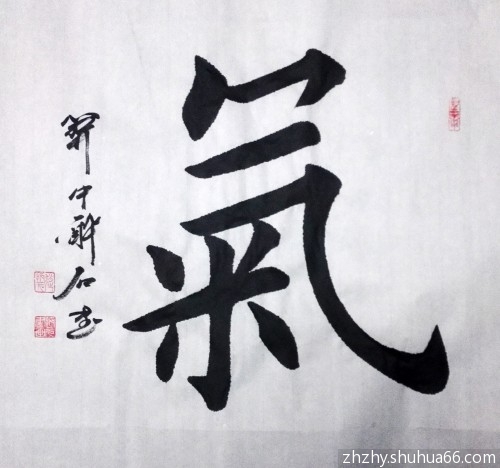 氣
中醉石書
zhzhy.shuhua66.com